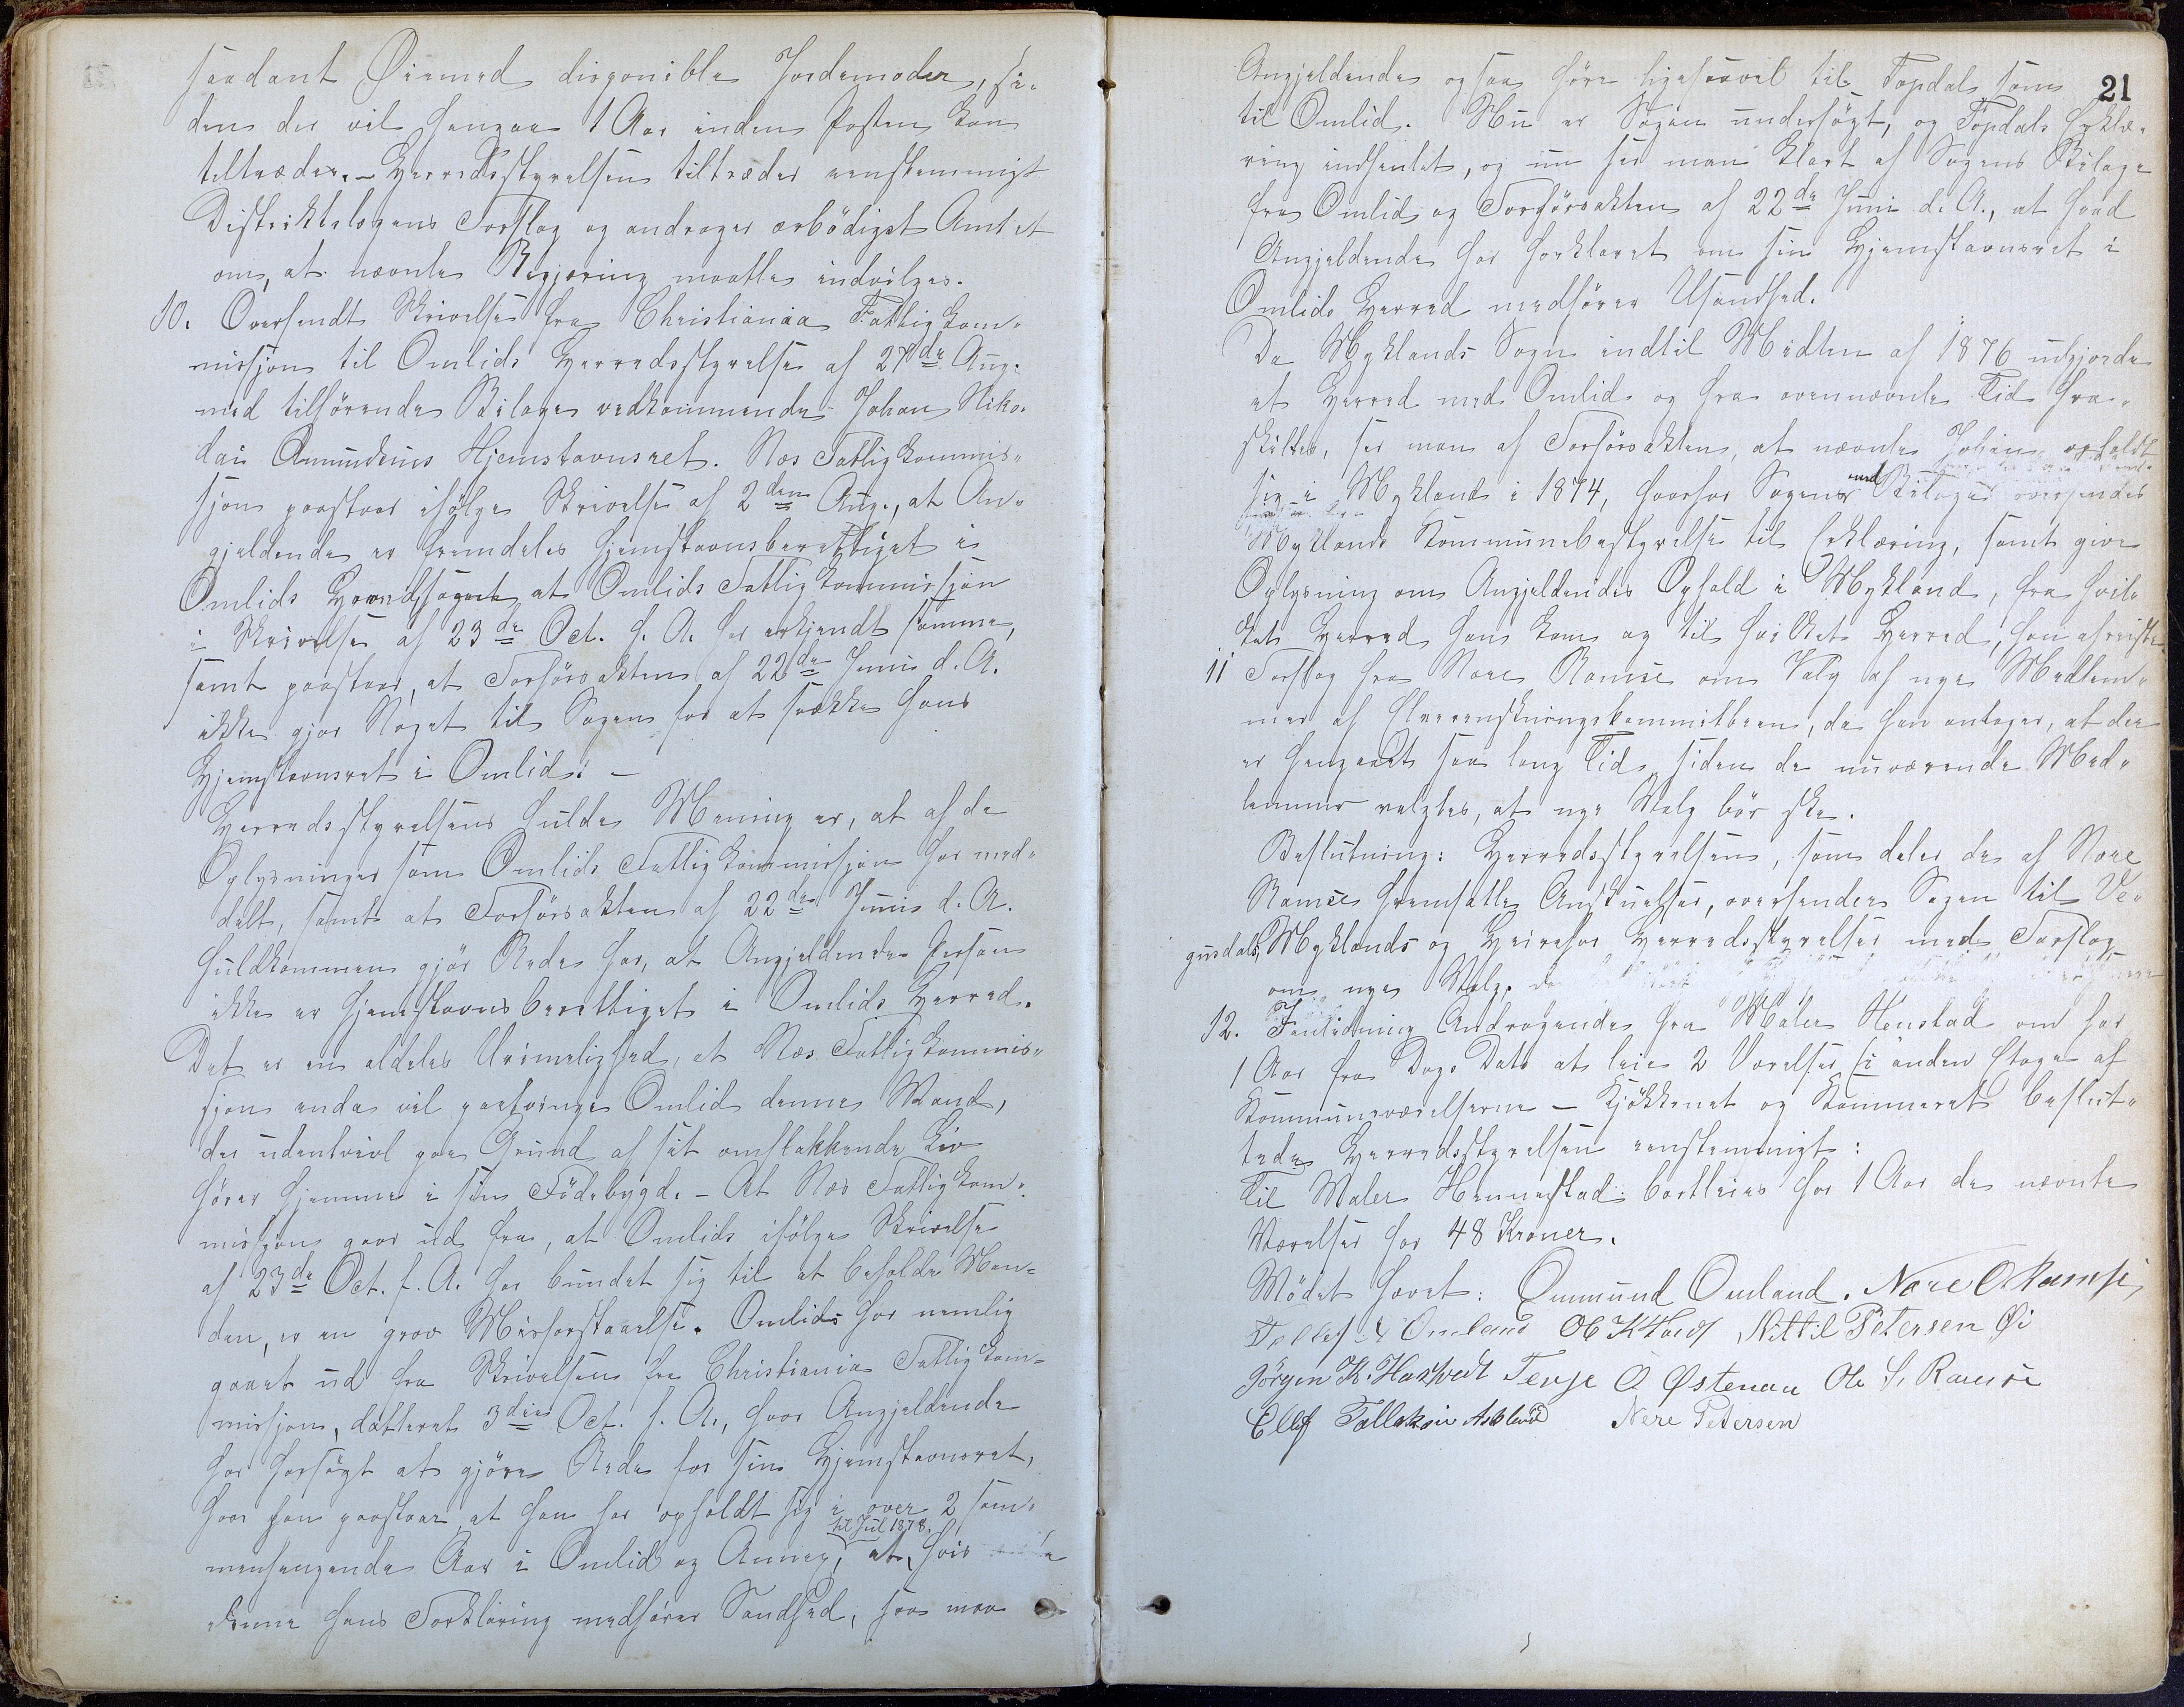 saadant Øiemed disponible Jordemoder, si-
den der vil hengaa 1 Aar inden Posten kan
tiltrædes. - Herredsstyrelsen tiltræder eenstemmigt
Distriktslægens Forslag og andrager ærbödigst Amtet
om, at nævnte Begjæring maatte indvilges.
10. Oversendt Skrivelse fra Christiania Fattigkom-
missjon til Omlids Herredsstyrelse af 27de Aug.
med tilhörende Bilage vedkommende Johan Niko-
lai Amundsens Hjemstavnsret. Næs Fattigkommis-
sjon paastaar ifölge Skrivelse af 2den Aug., at An-
gjeldende er fremdeles hjemstavnsberettiget i
Omlids Herred, at Omlids Fattigkommissjon
i Skrivelse af 23de Oct. f. A. har erkjendt samme,
samt paastaar, at Forhörsakten af 22de Juni d. A.
ikke gjör Noget til Sagen for at svække hans
Hjemstavnsret i Omlid. -
Herredsstyrelsens fulde Mening er, at af de
Oplysninger som Omlids Fattigkommissjon har med-
delt, samt at Forhörsakten af 22de Juni d. A.
fuldkommen gjör Rede for, at Angjeldende Person
ikke er hjemstavnsberettiget i Omlids Herred.
Det er en aldeles Urimelighed, at Næs Fattigkommis-
sjon enda vil paatvinge Omlid denne Mand,
der udentvivl paa Grund af sit omflakkende Liv
hörer hjemme i sin Födebygd. - At Næs Fattigkom-
missjon gaar ud fra, at Omlids ifölge Skrivelse
af 23de Oct. f. A. har bundet sig til at beholde Man-
den, er en grov Misforstaaelse. Omlids har nemlig
gaaet ud fra Skrivelsen fra Christiania Fattigkom-
missjon, datteret 3die Oct. f. A., hvor Angjeldende
har forsögt at gjöre Rede for sin Hjemstavnsret,
hvor han paastaar, at han har opholdt sig i over 2 sam-
til Jul 1878.
menhengende Aar i Omlid og Annex, at, hvis
denne hans Forklaring medförer Sandhed, saa maa
21
Angjeldende ogsaa höre ligesaavel til Topdal som
til Omlid. Nu er Sagen undersögt, og Topdals Erklæ-
ring indhentet, og nu ser man klart af Sagens Bilage
fra Omlid og Forhörsakten af 22de Juni d. A., at hvad
Angjeldende har forklaret om sin Hjemstavnsret i
Omlids Herred medförer Usandhed.
Da Myklands Sogn indtil Midten af 1876 udgjorde
et Herred med Omlid og fra ovennævnte Tid fra-
skiltes, ser man af Forhörsakten, at nævnte Johan opholdt
sig i Mykland i 1874, hvorfor Sagen med Bilager oversendes
Myklands Kommunebestyrelse til Erklæring, samt give
Oplysning om Angjeldendes Ophold i Mykland, fra hvil-
ket Herred han kom og til hvilket Herred han afreiste.
11 Forslag fra Nere Ramse om Valg af nye Medlem-
mer af Elverenskningskommitteen, da han antager, at der
er hengaaet saa lang Tid siden de nuværende Med-
lemmer valgtes, at nye Valg bör ske.
Beslutning: Herredsstyrelsen, som deler de af Nere
Ramse fremsatte Anskuelser, oversender Sagen til Ve-
gusdals, Myklands og Hereros Herredsstyrelser med Forslag
om nye Valg.
12. I Anledning Andragende fra Maler Henstad om for
1 Aar fra Dags Dato at leie 2 Værelser i anden Etage af
Kommuneværelserne - Kjökkenet og Kammeret beslut-
tede Herredsstyrelsen eenstemmigt:
Til Maler Hennestad bortleies for 1 Aar de nævnte
Værelser for 48 Kroner.
Mödet hævet: Ommund Omland. Nere O Ramse,
Omland Nittil Petersen Øi
Jörgen K. Haxtvedt Terje O Østenaa Ole S. Ramse
Ellef Tallaksen Askland Nere Petersen